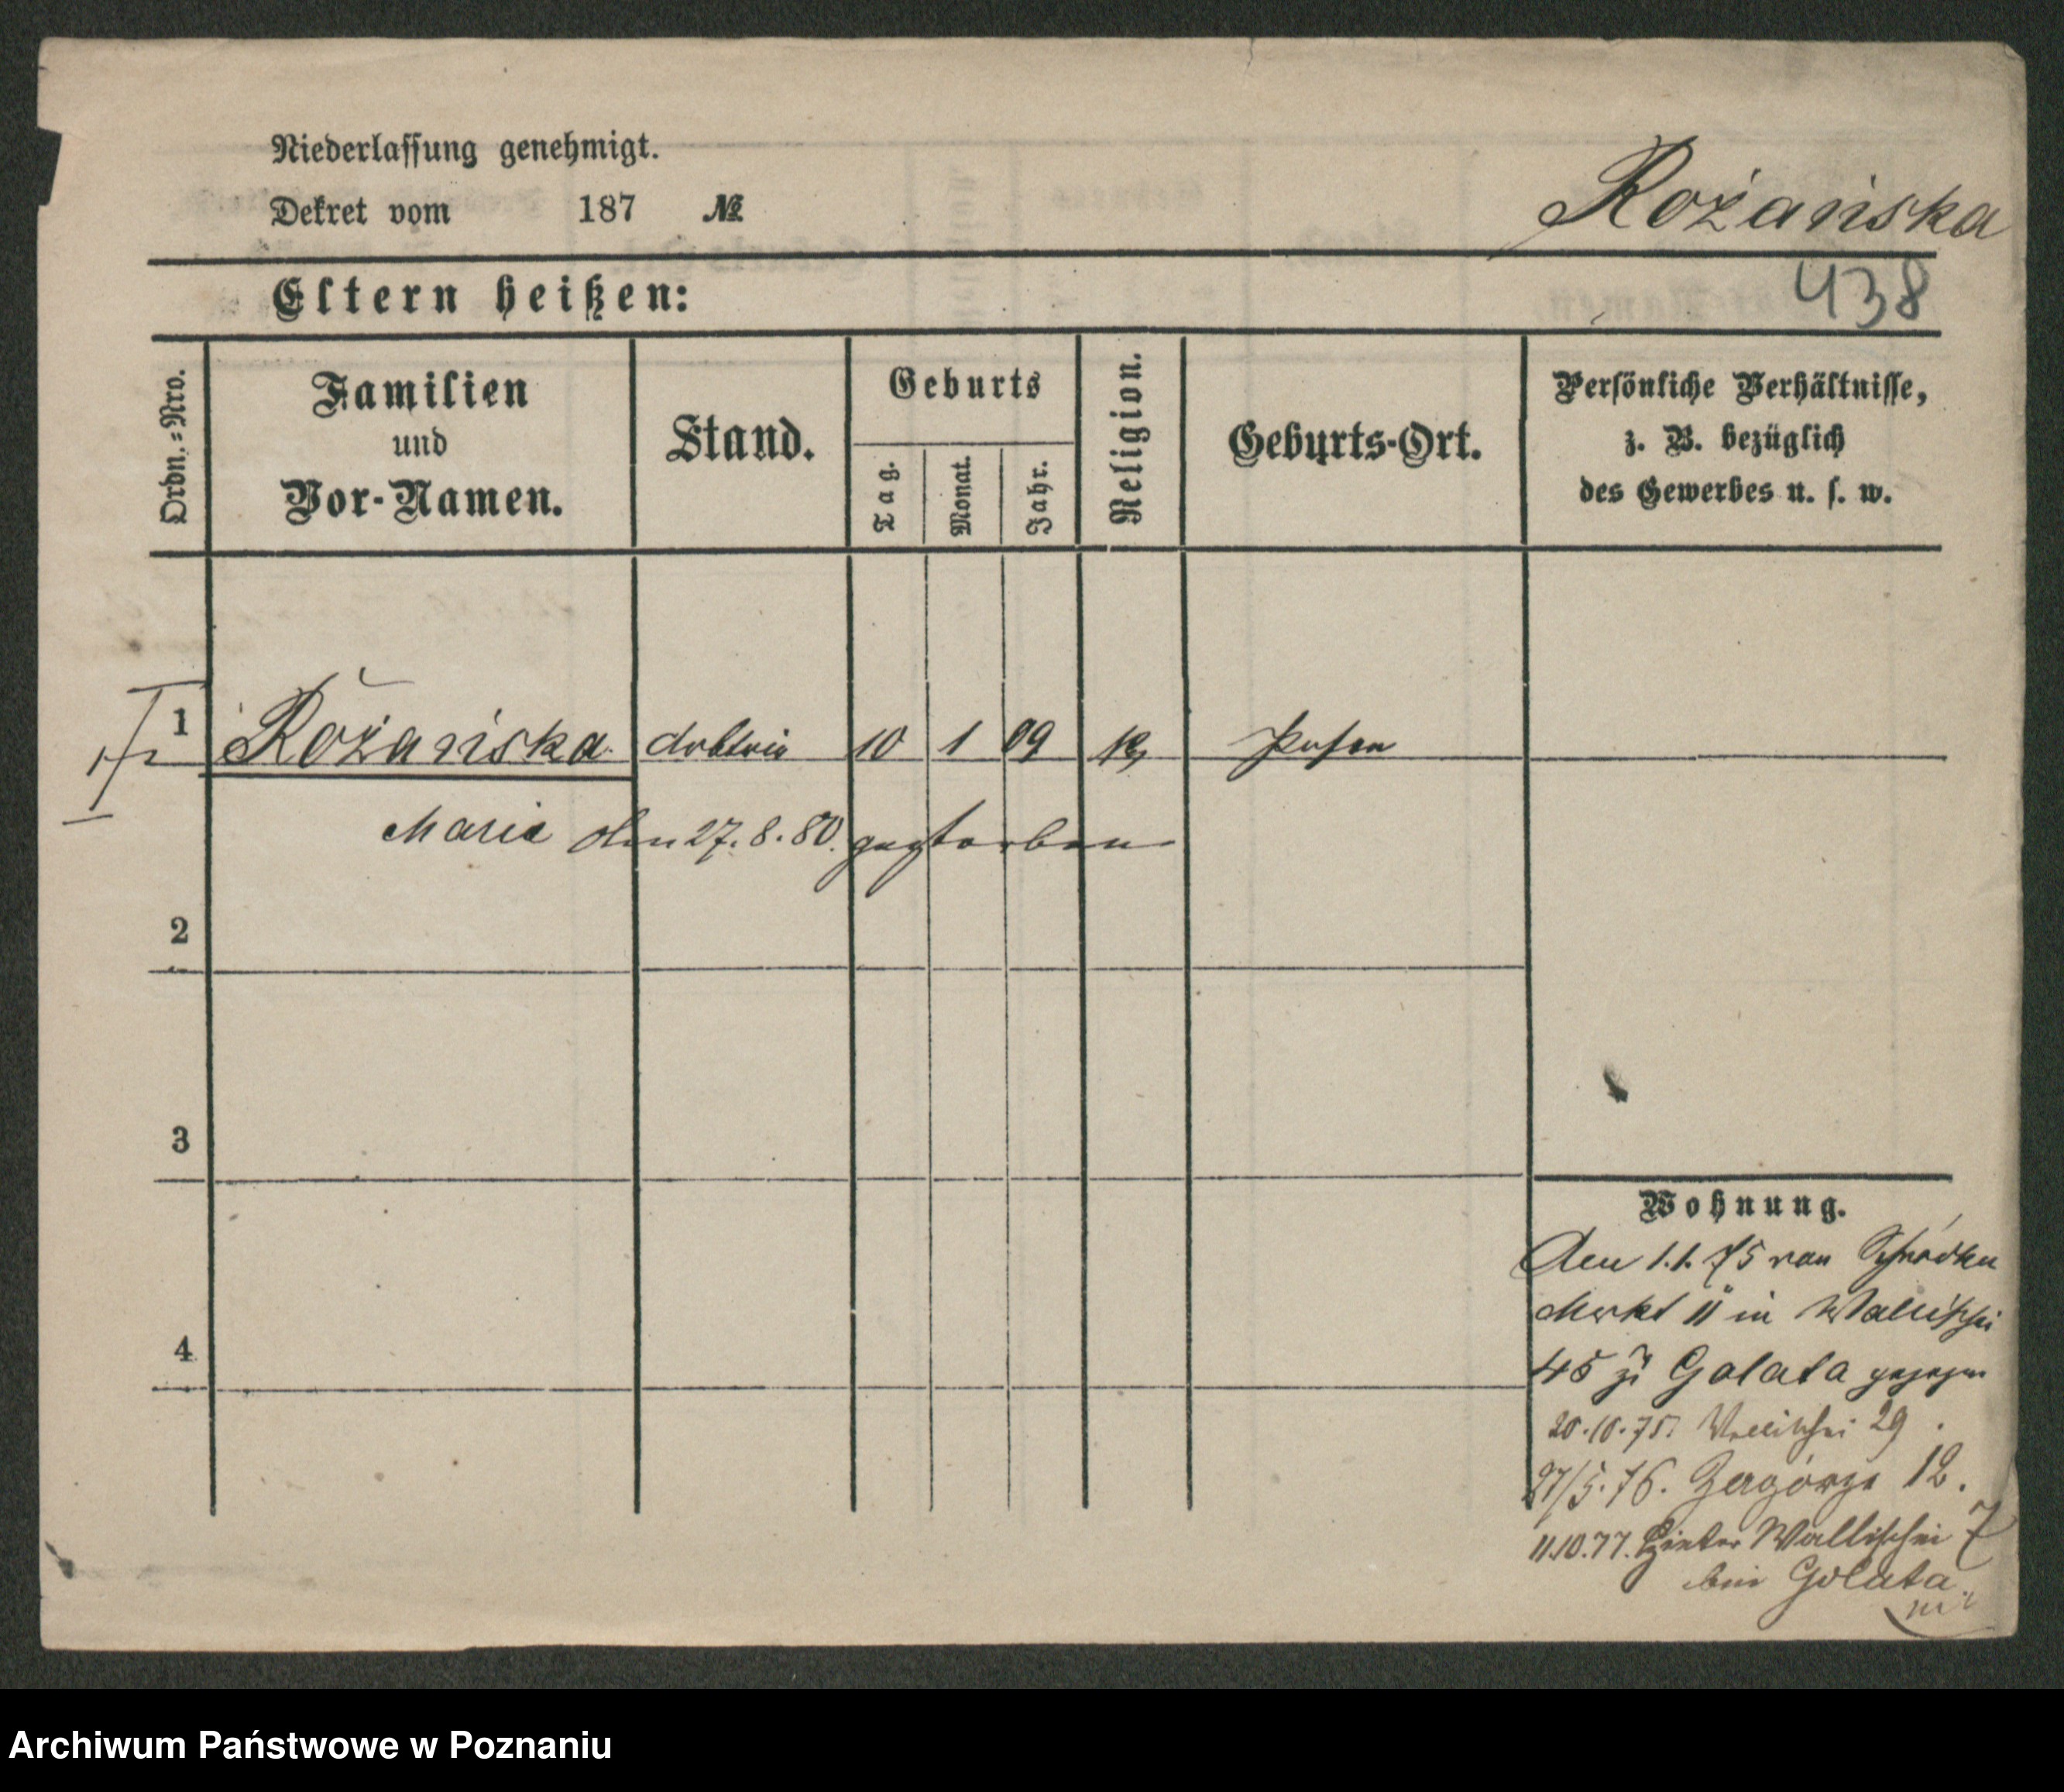 Niederlassung genehmigt.
Dekret vom 187 №
Rożańska
438
Eltern heißen:
Ordn.=Nro.
Familien
und
Vor-Namen.
Stand.
Geburts
Tag.
Monat.
Jahr.
Religion.
Geburts-Ort.
Persönliche Verhältnisse,
z. B. bezüglich
des Gewerbes u. s. w.
1 Rożańska 10 1 09 Posen
Maria den 27.8.80. gestorben
2
3
4
Wohnung.
Den 1.1.75 von Schrodka
Markt 11 in Wallischei
45 zu Golata gezogen
Wallischei 29.
27/5.76. Zagórze 12.
11.10.77. Hinter Wallischei 7
bei Golata
Archiwum Państwowe w Poznaniu